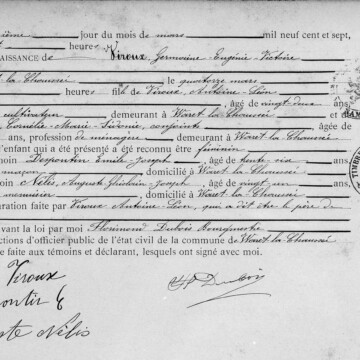 ième jour du mois de mars mil neuf cent et sept,
heures
AISSANCE de Viroux, Germaine Eugénie Victoire
et-la-Chaussée, le quatorze mars
heures fille de Viroux, Antoine-Léon
, âgé de vingt-deux ans,
cultivateur, demeurant à Waret la Chaussée et
Cornélie-Marie-Sidonie, conjointe, âgée de
ans, profession de ménagère, demeurant à Waret la Chaussée
l'enfant qui a été présenté a été reconnu être féminin
oin Desponthin Emile-Joseph, âgé de trente-six ans,
maçon, domicilié à Waret-la-Chaussée
oin Nélis, Auguste Ghislain-Joseph, âgé de vingt-un ans,
menuisier, domicilié à Waret la Chaussée
aration faite par Viroux Antoine-Léon, qui a dit être le père de
evant la loi par moi Florimond Dubois Bourgmestre
ctions d'officier public de l'état civil de la commune de Waret-la-Chaussée
e faite aux témoins et déclarant, lesquels ont signé avec moi.
Viroux
Dubois
ste Nélis
TIMBRE